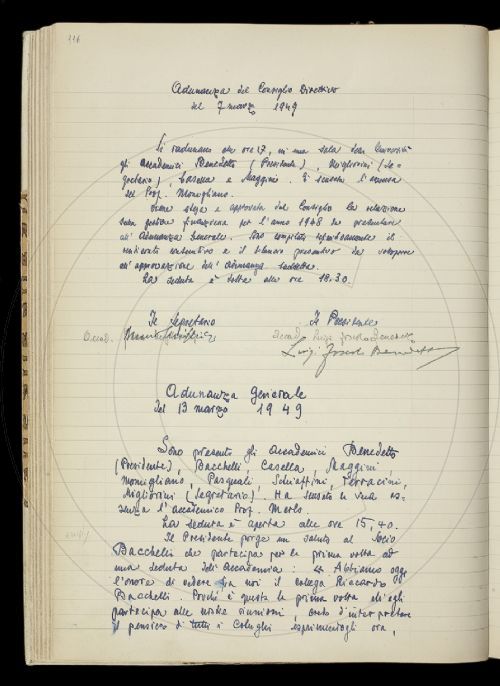 116
Adunanza del Consiglio Direttivo
del 7 marzo 1949
Si radunano alle ore 17, in una sala
gli accademici Benedetto (Presidente), Migliorini (Se-
gretario), Casella e Maggini. È scusata l'assenza
del Prof. Momigliano.
Viene stesa e approvata dal Consiglio la relazione
sulla gestione finanziaria per l'anno 1948 da presentare
all'Adunanza Generale. Sono compilati il
rendiconto consuntivo e il bilancio preventivo da sottoporre
all'approvazione dell'Adunanza suddetta.
La seduta è tolta alle ore 18.30.
Il Segretario Il Presidente
Accad. Bruno Migliorini Accad. Luigi Foscolo Benedetto
Luigi Foscolo Benedetto
Adunanza generale
del 13 marzo 1949
Sono presenti gli accademici Benedetto
(Presidente), Bacchelli, Casella, Maggini,
Momigliano, Pasquali, Schiaffini, Terracini,
Migliorini (Segretario). Ha scusato la sua as-
senza l'accademico Prof. Merlo.
La seduta è aperta alle ore 15,40.
Il Presidente porge un saluto al Socio
Bacchelli che partecipa per la prima volta ad
una seduta dell'Accademia: "Abbiamo oggi
l'onore di vedere fra noi il collega Riccardo
Bacchelli. Poiché è questa la prima volta ch'egli
partecipa alle nostre riunioni, credo d'interpretare
il pensiero di tutti i Colleghi esprimendogli ora,